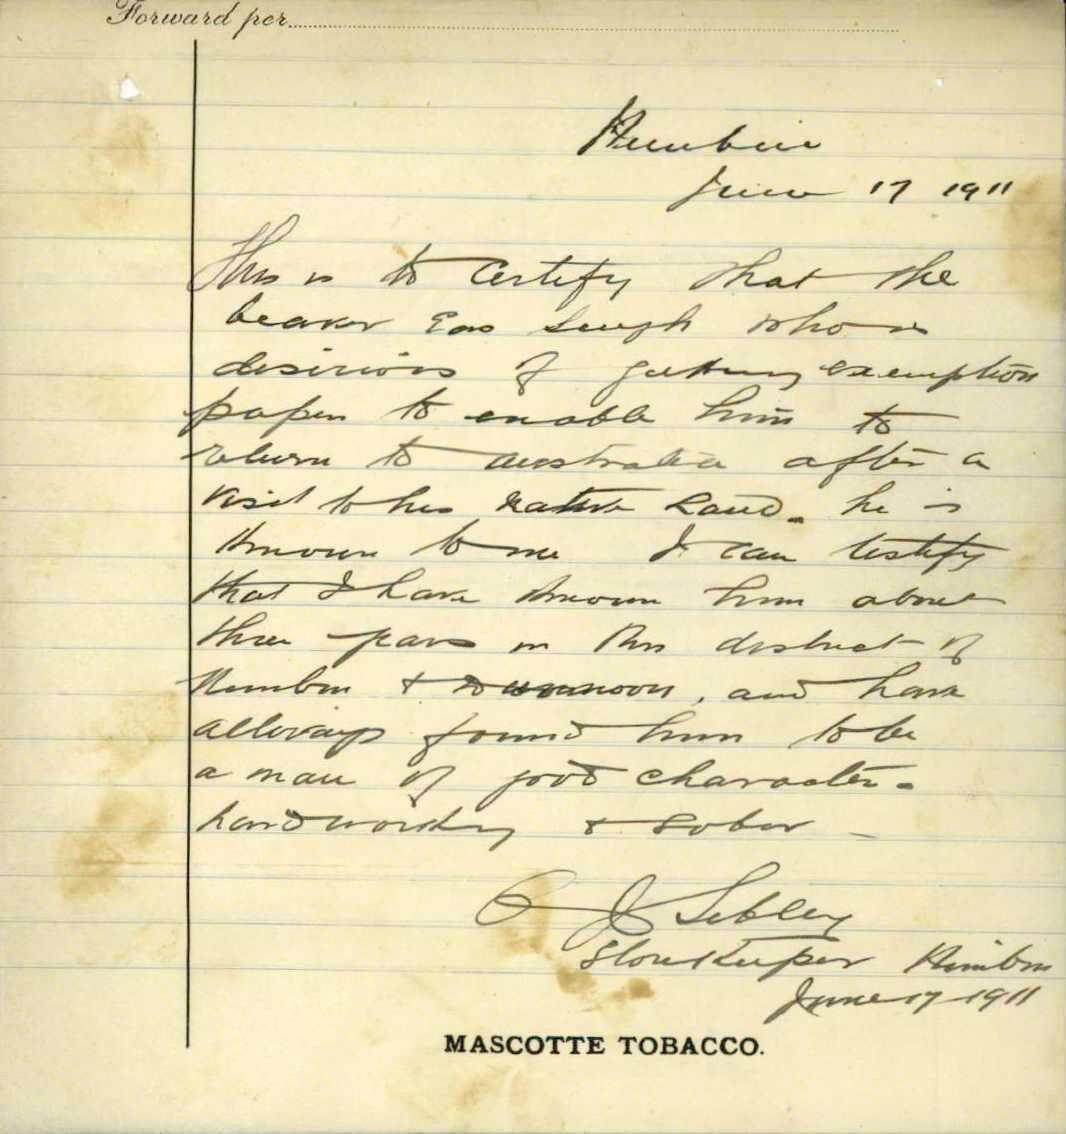 Forward per
Nimbin
June 17 1911
This is to certify that the
bearer Eas Singh who is
desirious of getting exemption
paper to enable him to
return to australia after a
visit to his native Land. he is
known to me I can testify
that I have known him about
three years in this district of
Nimbin & Dunnoon, and have
allways found him to be
a man of good character.
hardworking & sober
J Sibley
Storekeeper Nimbin
June 17 1911
MASCOTTE TOBACCO.